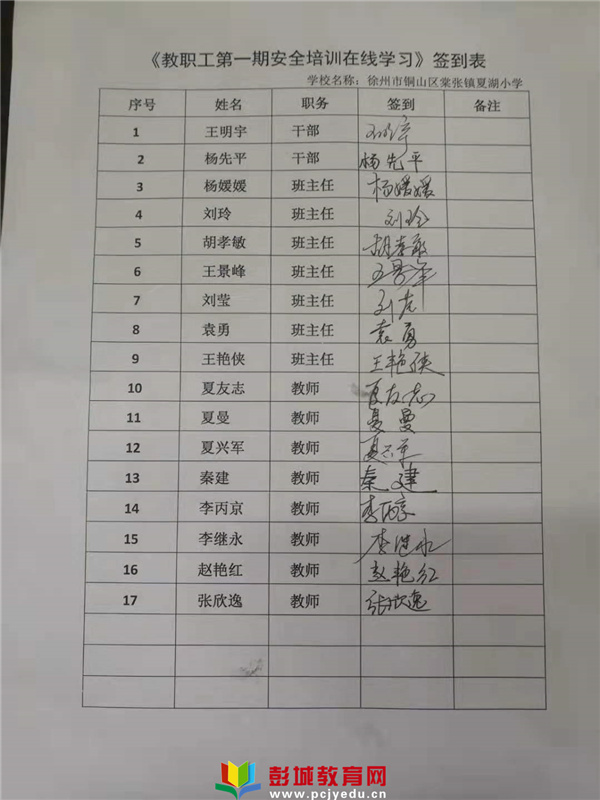 《教职工第一期安全培训在线学习》签到表
学校名称：徐州市铜山区棠张镇夏湖小学
序号 姓名 职务 签到 备注
1 王明宇 干部
2 杨先平 干部 杨先平
3 杨媛媛 班主任 杨媛媛
4 刘玲 班主任 刘玲
5 胡孝敏 班主任 胡孝敏
6 王景峰 班主任 王景峰
7 刘莹 班主任 刘莹
8 袁勇 班主任 袁勇
9 王艳侠 班主任 王艳侠
10 夏友志 教师 夏友志
11 夏曼 教师 夏曼
12 夏兴军 教师 夏兴军
13 秦建 教师 秦建
14 李丙京 教师 李丙京
15 李继永 教师 李继永
16 赵艳红 教师 赵艳红
17 张欣逸 教师 张欣逸
彭城教育网
www.pcjyedu.cn